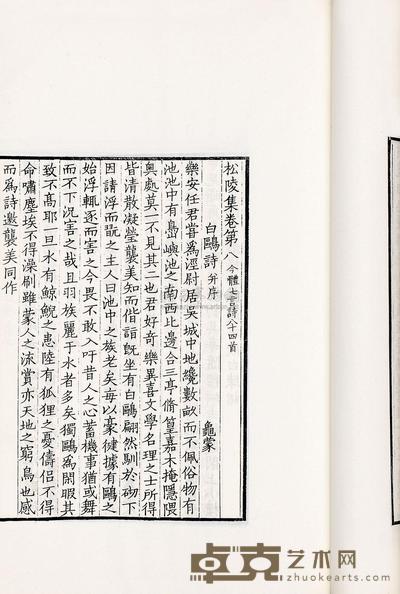 松陵集卷第八今體七言詩八十四首
白鷗詩并序 龜蒙
樂安任君嘗爲涇尉居吳城中地纔數畝而不佩俗物有
池池中有島嶼池之南西北邊合三亭脩篁嘉木掩隱隈
奧處其一不見其二也君好奇樂異喜文學名理之士所得
皆清散凝瑩襲美知而偕詣旣坐有白鷗翩然馴於砌下
因請浮而翫之主人曰池中之族老矣每以豪健據有鷗之
始浮輒逐而害之今畏不敢入吁昔人之心蓄機事猶或舞
而不下況害之哉且羽族麗于水者多矣獨鷗爲閑暇其
致不高耶一旦水有鯨鯢之患陸有狐狸之憂儔侶不得
命嘯塵埃不得澡刷雖蒙人之流賞亦天地之窮鳥也感
而爲詩邀襲美同作
卓克艺术网
zhuokearts.com